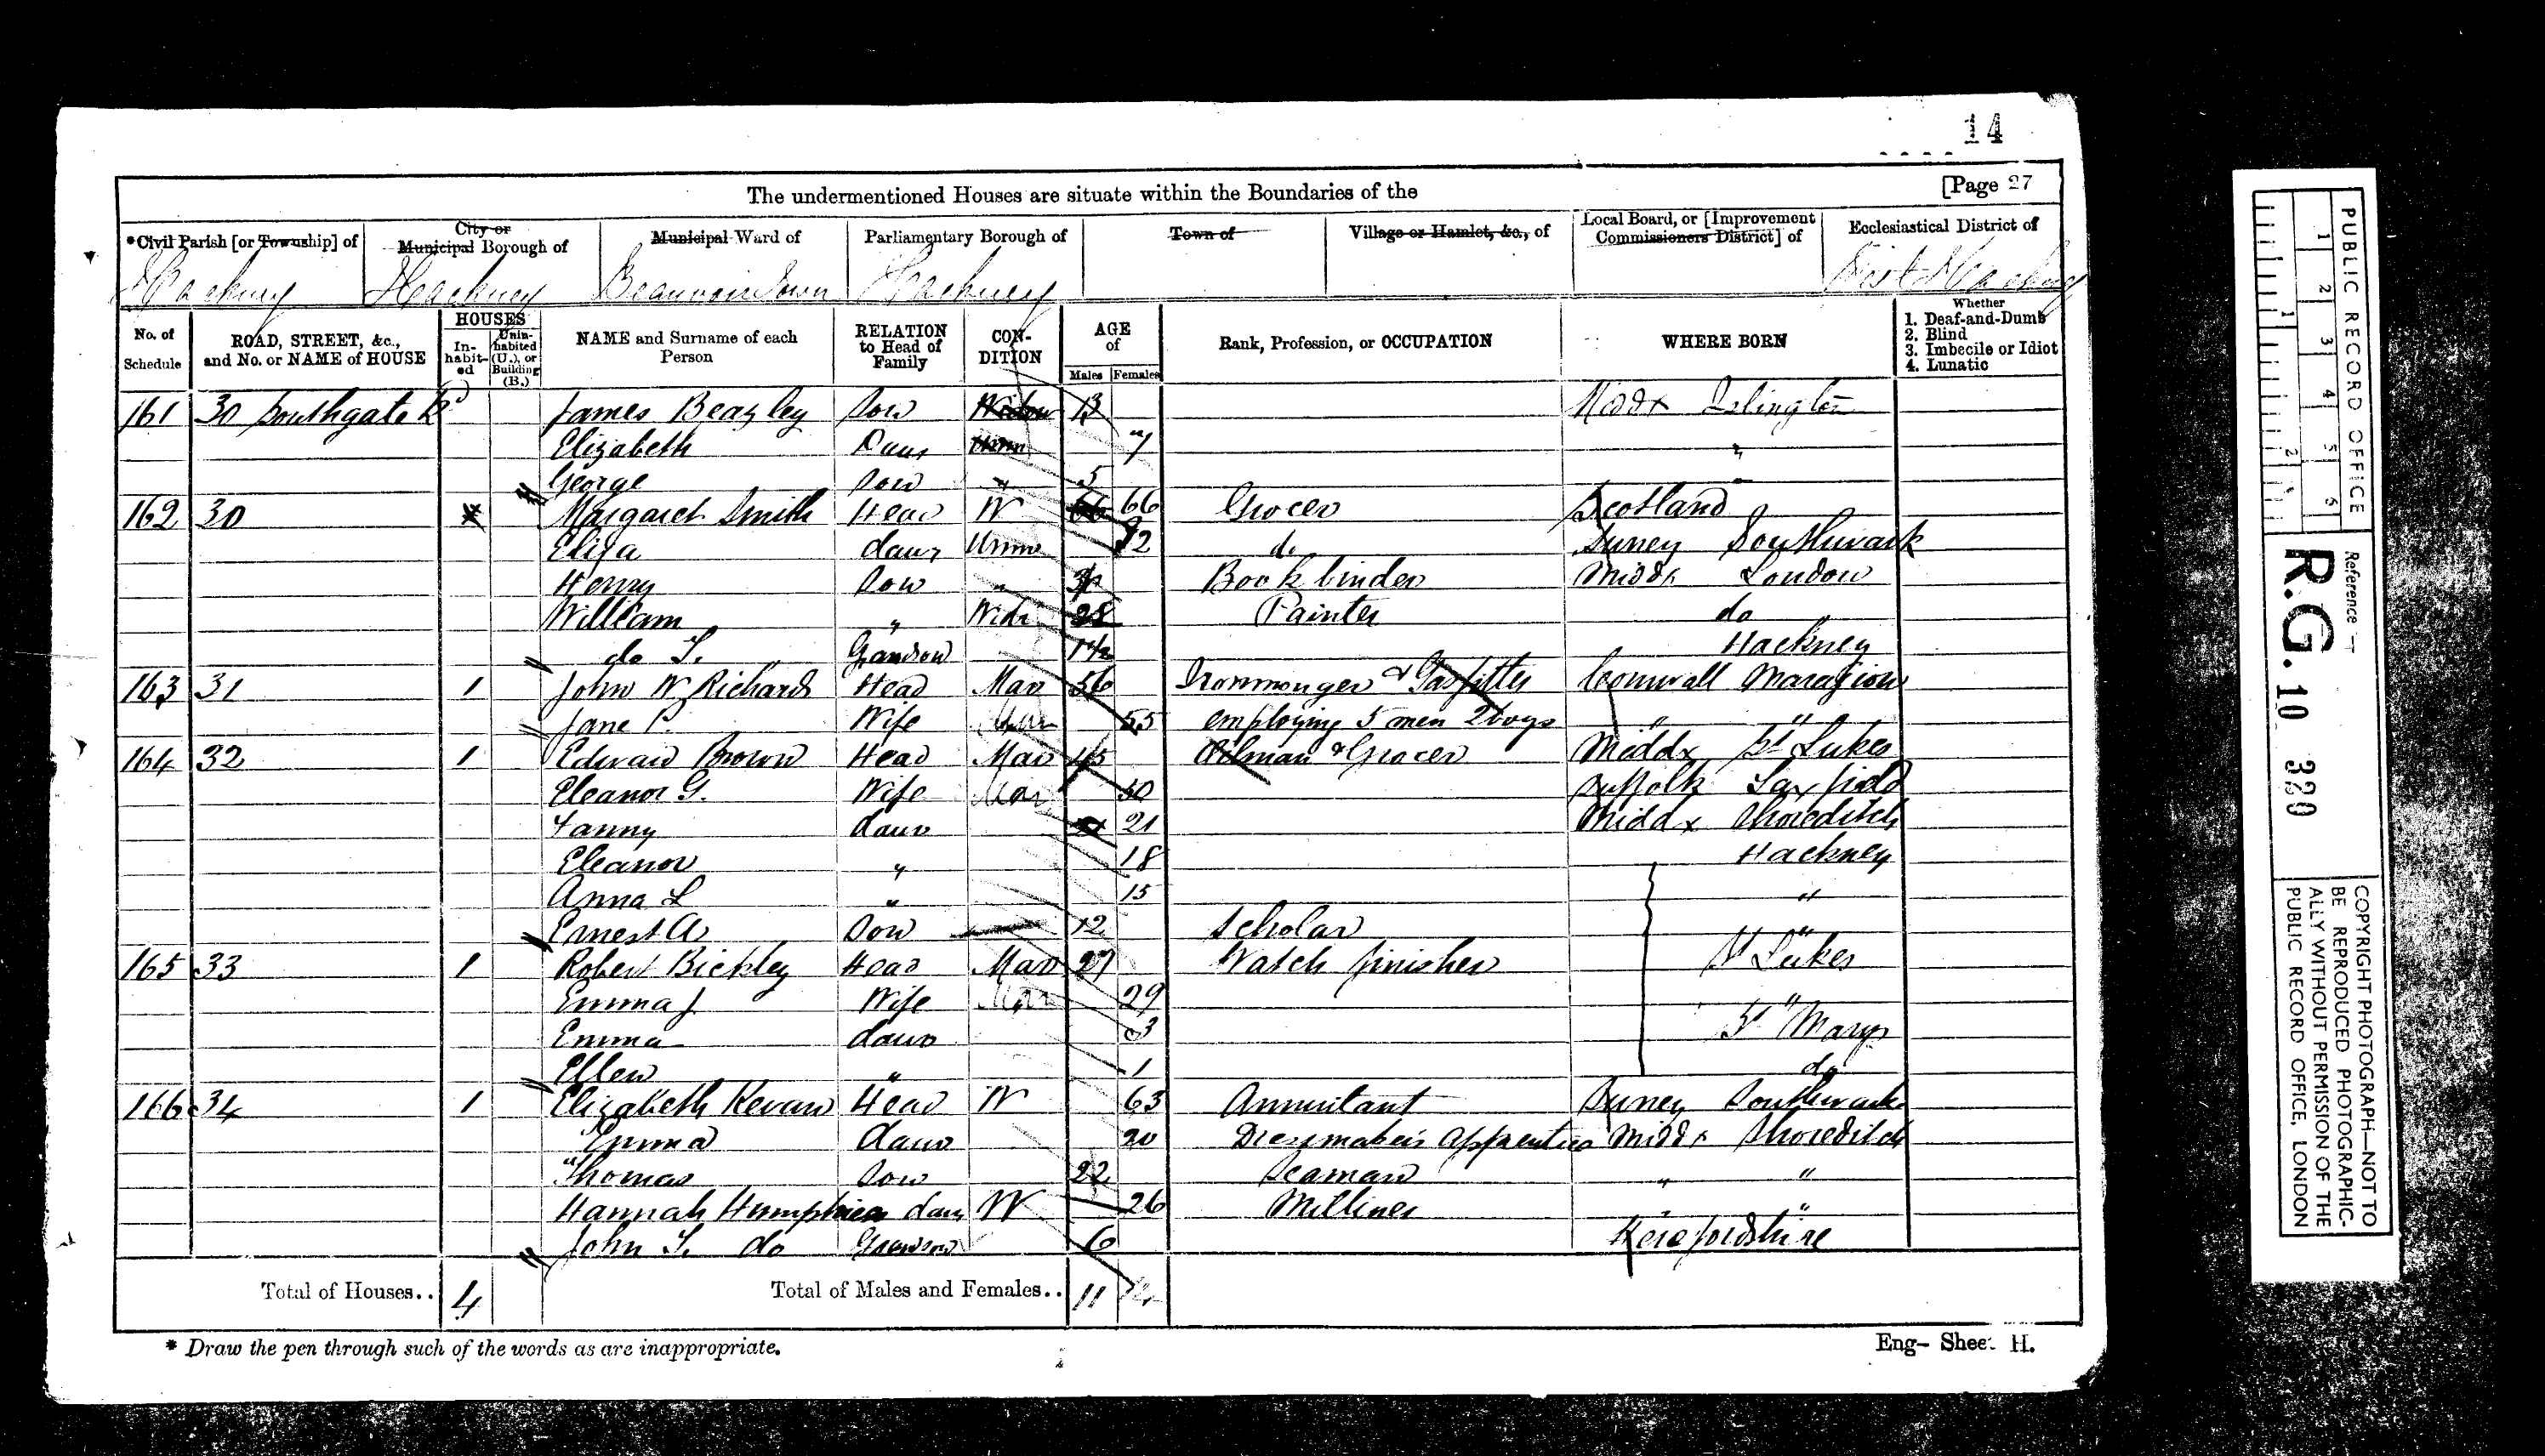 14
The undermentioned Houses are situate within the Boundaries of the [Page 27
*Civil Parish [or Township] of City or Municipal Borough of Municipal Ward of Parliamentary Borough of Town of Village or Hamlet, &c., of Local Board, or [Improvement Commissioners District] of Ecclesiastical District of
Hackney Hackney Beauvoir Town Hackney West Hackney
No. of Schedule ROAD, STREET, &c., and No. or NAME of HOUSE HOUSES Inhabited Uninhabited (U.), or Building (B.) NAME and Surname of each Person RELATION to Head of Family CONDITION AGE of Males Females Rank, Profession, or OCCUPATION WHERE BORN Whether 1. Deaf-and-Dumb 2. Blind 3. Imbecile or Idiot 4. Lunatic
161 30 Southgate Rd James Beazley Son 13 Middx Islington
Elizabeth Daur 7 "
George Son " 5 "
162 30 Margaret Smith Head W 66 Grocer Scotland
Eliza daur Unm 32 do Surrey Southwark
Henry Son " Bookbinder Middx London
William " Widr 28 Painter do
do T. Grandson Hackney
163 31 1 John W Richards Head Mar 56 Ironmonger & Gasfitter Cornwall Marazion
Jane P. Wife Mar 55 employing 5 men 2 boys " "
164 32 1 Edward Brown Head Mar 45 Oilman & Grocer Middx St Lukes
Eleanor G. Wife Mar 50 Suffolk Laxfield
Fanny daur 21 Middx Shoreditch
Eleanor " 18 Hackney
Anna L " 15 "
Ernest A Son 12 Scholar "
165 33 1 Robert Bickley Head Mar 27 Watch finisher St Lukes
Emma J Wife Mar 29 "
Emma daur 3 St Marys
Ellen " 1 do
166 34 1 Elizabeth Kevan Head W 63 Annuitant Surrey Southwark
Emma daur 20 Dressmakers apprentice Middx Shoreditch
Thomas Son 22 Seaman " "
Hannah Humphries daur W 26 Milliner " "
John T. do Grandson 6 Herefordshire
Total of Houses.. 4 Total of Males and Females.. 11 14
* Draw the pen through such of the words as are inappropriate. Eng- Sheet H.
PUBLIC RECORD OFFICE
1 2 3 4 5 6
1 2
Reference
R.G. 10 320
COPYRIGHT PHOTOGRAPH—NOT TO
BE REPRODUCED PHOTOGRAPHIC-
ALLY WITHOUT PERMISSION OF THE
PUBLIC RECORD OFFICE, LONDON